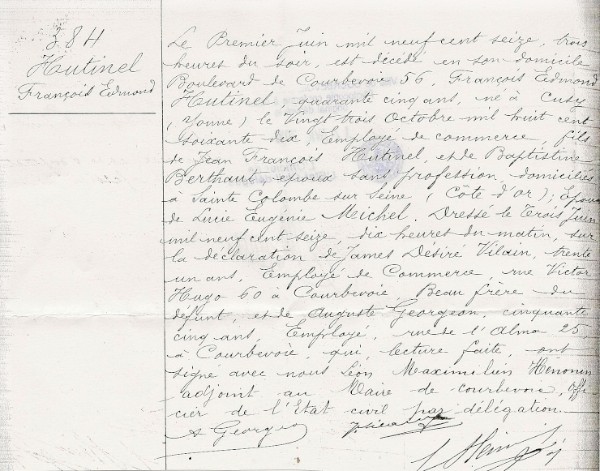 384
Hutinel
François Edmond
Le Premier Juin mil neuf cent seize, trois
heures du soir, est décédé en son domicile
Boulevard de Courbevoie 56, François Edmond
Hutinel, quarante cinq ans, né à Cusy
(Yonne) le Vingt trois Octobre mil huit cent
soixante dix, Employé de commerce, fils
de Jean François Hutinel, et de Baptistine
Berthaut, époux sans profession, domiciliés
à Sainte Colombe sur Seine (Côte d'or); Epoux
de Lucie Eugénie Michel. Dressé le Trois Juin
mil neuf cent seize, dix heures du matin, sur
la déclaration de James Désiré Vilain, trente
un ans, Employé de Commerce, rue Victor
Hugo 60 à Courbevoie, Beau frère du
défunt, et de Auguste Georgeon, cinquante
cinq ans, Employé, rue de l'Alma 25,
à Courbevoie, qui, lecture faite, ont
signé avec nous Léon Maximilien
adjoint au Maire de courbevoie, offi-
cier de l'Etat civil par délégation.
A Georgeon